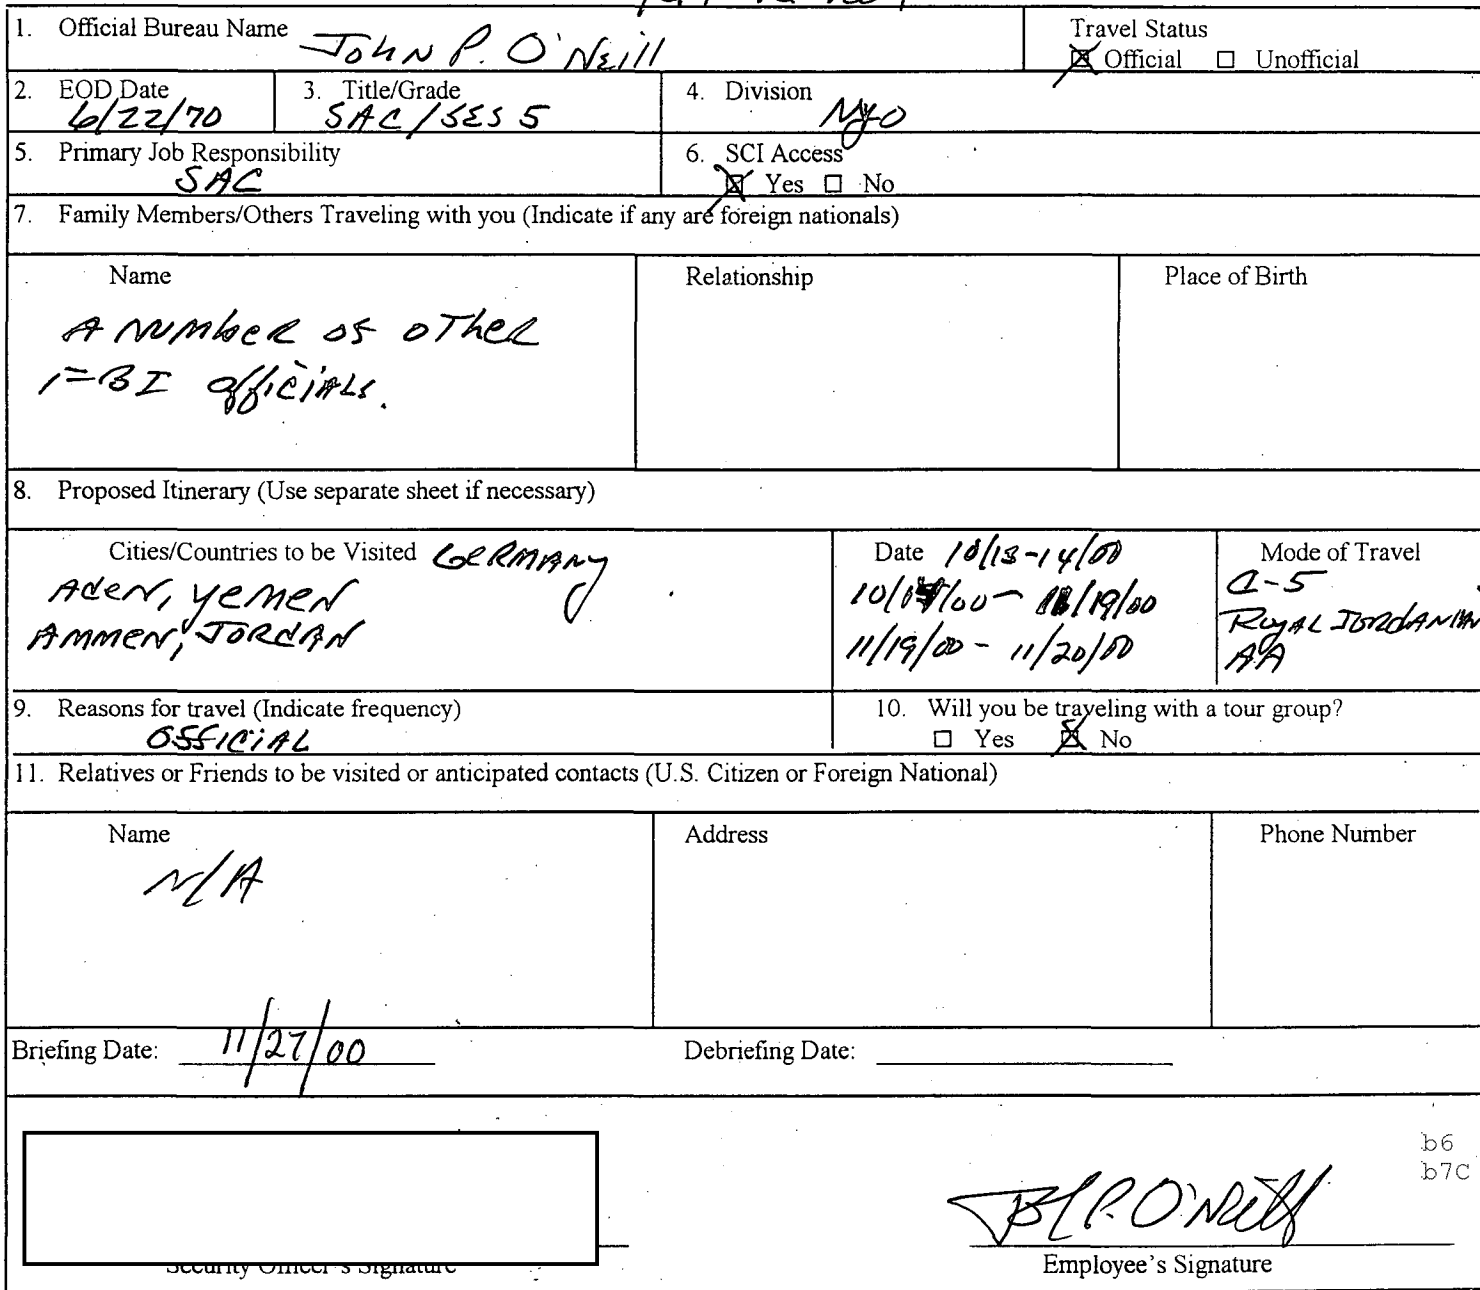 1. Official Bureau Name John P. O'Neill
Travel Status
☒ Official ☐ Unofficial
2. EOD Date 6/22/70
3. Title/Grade SAC/SES 5
4. Division NYO
5. Primary Job Responsibility SAC
6. SCI Access
☒ Yes ☐ No
7. Family Members/Others Traveling with you (Indicate if any are foreign nationals)
Name Relationship Place of Birth
A number of other
FBI officials.
8. Proposed Itinerary (Use separate sheet if necessary)
Cities/Countries to be Visited Germany
Aden, Yemen
Ammen, Jordan
Date 10/13-14/00
/00 - /19/00
11/19/00 - 11/20/00
Mode of Travel
C-5
Royal Jordanian
AA
9. Reasons for travel (Indicate frequency)
Official
10. Will you be traveling with a tour group?
☐ Yes ☒ No
11. Relatives or Friends to be visited or anticipated contacts (U.S. Citizen or Foreign National)
Name Address Phone Number
N/A
Briefing Date: 11/27/00 Debriefing Date:
b6
b7C
P. O'Neill
Security Officer's Signature Employee's Signature